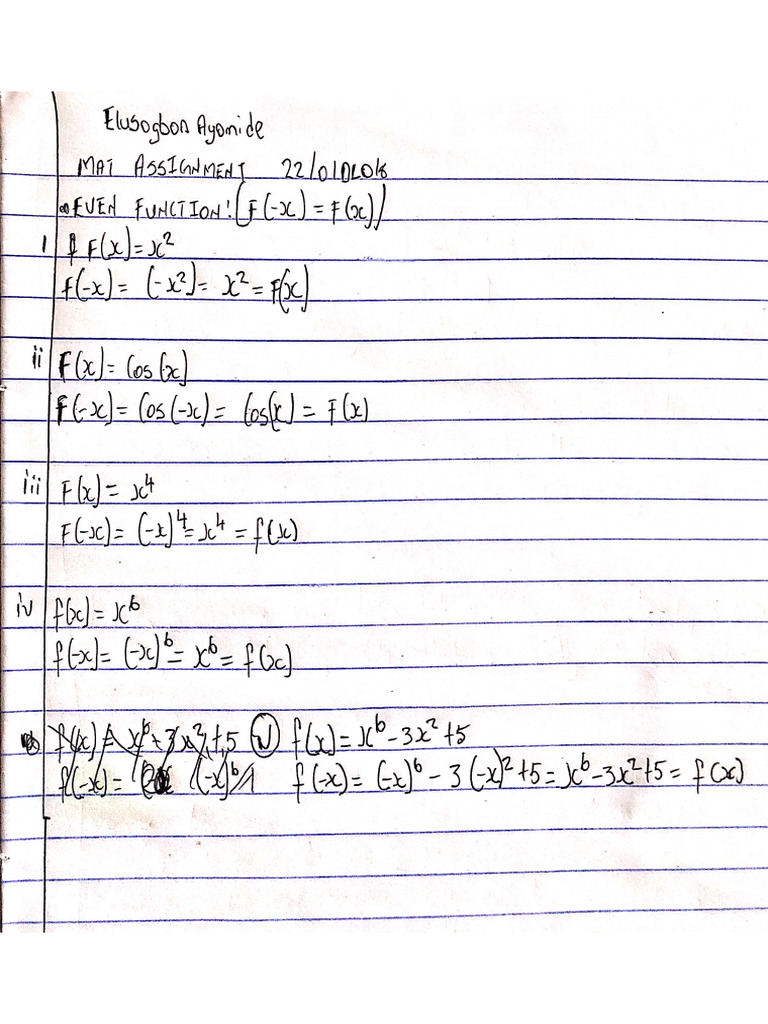 Elusogbon Ayomide
MAT ASSIGNMENT 22/01DL018
EVEN FUNCTION! (F(-x) = F(x))
i F(x) = x²
f(-x) = (-x²) = x² = F(x)
ii F(x) = Cos(x)
F(-x) = Cos(-x) = Cos(x) = F(x)
iii F(x) = x⁴
F(-x) = (-x)⁴ = x⁴ = f(x)
iv f(x) = x⁶
f(-x) = (-x)⁶ = x⁶ = f(x)
f(x) = x⁶ - 3x² + 5 (v) f(x) = x⁶ - 3x² + 5
f(-x) = (-x)⁶ f(-x) = (-x)⁶ - 3(-x)² + 5 = x⁶ - 3x² + 5 = f(x)